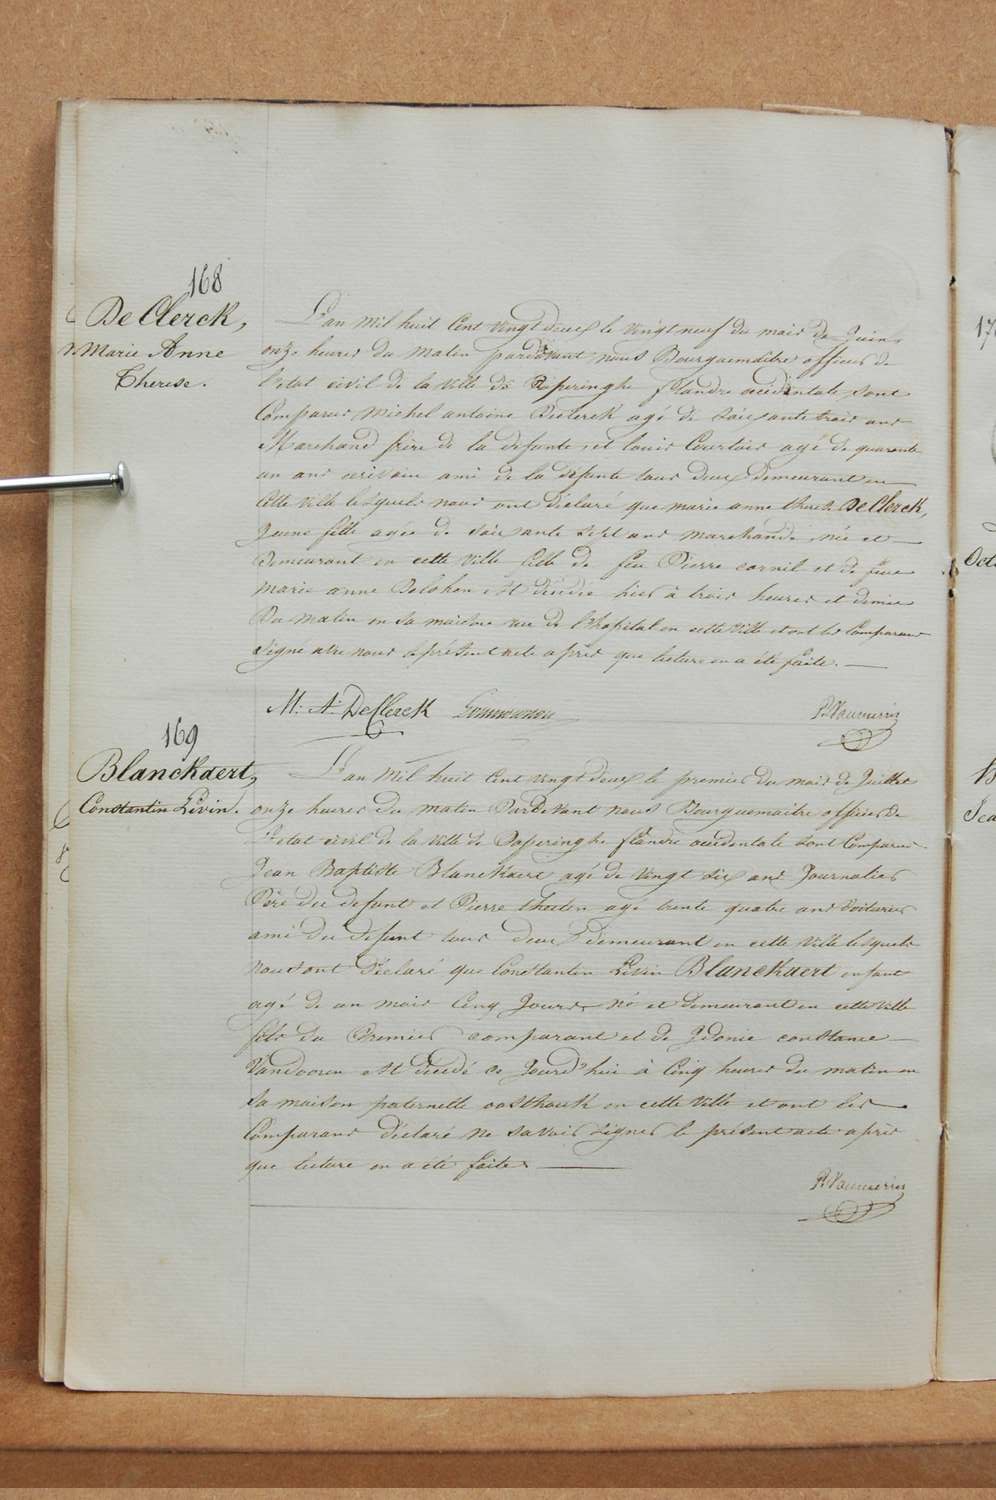 168
De Clerck,
Marie Anne
Therese.
L'an mil huit Cent vingt deux le vingt neuf du mois de Juin
onze heures du matin pardevant nous Bourguemaitre officier de
l'etat civil de la ville de Poperinghe flandre occidentale sont
Comparus Michel antoine Declerck agé de soixante trois ans
Marchand frère de la defunte, et louis Courtois agé de quarante
un ans ecrivain ami de la defunte tous deux demeurant en
Cette ville lesquels nous ont déclaré que marie anne therese De Clerck,
Jeune fille agée de soixante sept ans marchande née et
demeurant en cette ville fille de feu Pierre cornil et de feue
marie anne est décédée hier à trois heures et demie
du matin en sa maison rue de l'hopital en cette ville et ont les Comparans
signé avec nous le présent acte après que lecture en a été faite.
M: A: DeClerck
169
Blanckaert,
Constantin Livin.
L'an Mil huit Cent vingt deux le premier du mois de Juillet
onze heures du matin Pardevant nous Bourguemaitre officier de
l'etat civil de la ville de Poperinghe flandre occidentale sont Comparus
Jean Baptiste Blanckaert agé de vingt six ans Journalier
Père du defunt et Pierre agé trente quatre ans voiturier
ami du defunt tous deux demeurant en cette ville lesquels
nous ont déclaré que Constantin Livin Blanckaert enfant
agé de un mois Cinq Jours né et demeurant en cette ville
fils du Premier comparant et de Idonie constance
Vandooren est décédé ce Jourd'hui à Cinq heures du matin en
sa maison paternelle oosthouk en cette ville et ont les
Comparans déclaré ne savoir signer le présent acte après
que lecture en a été faite.